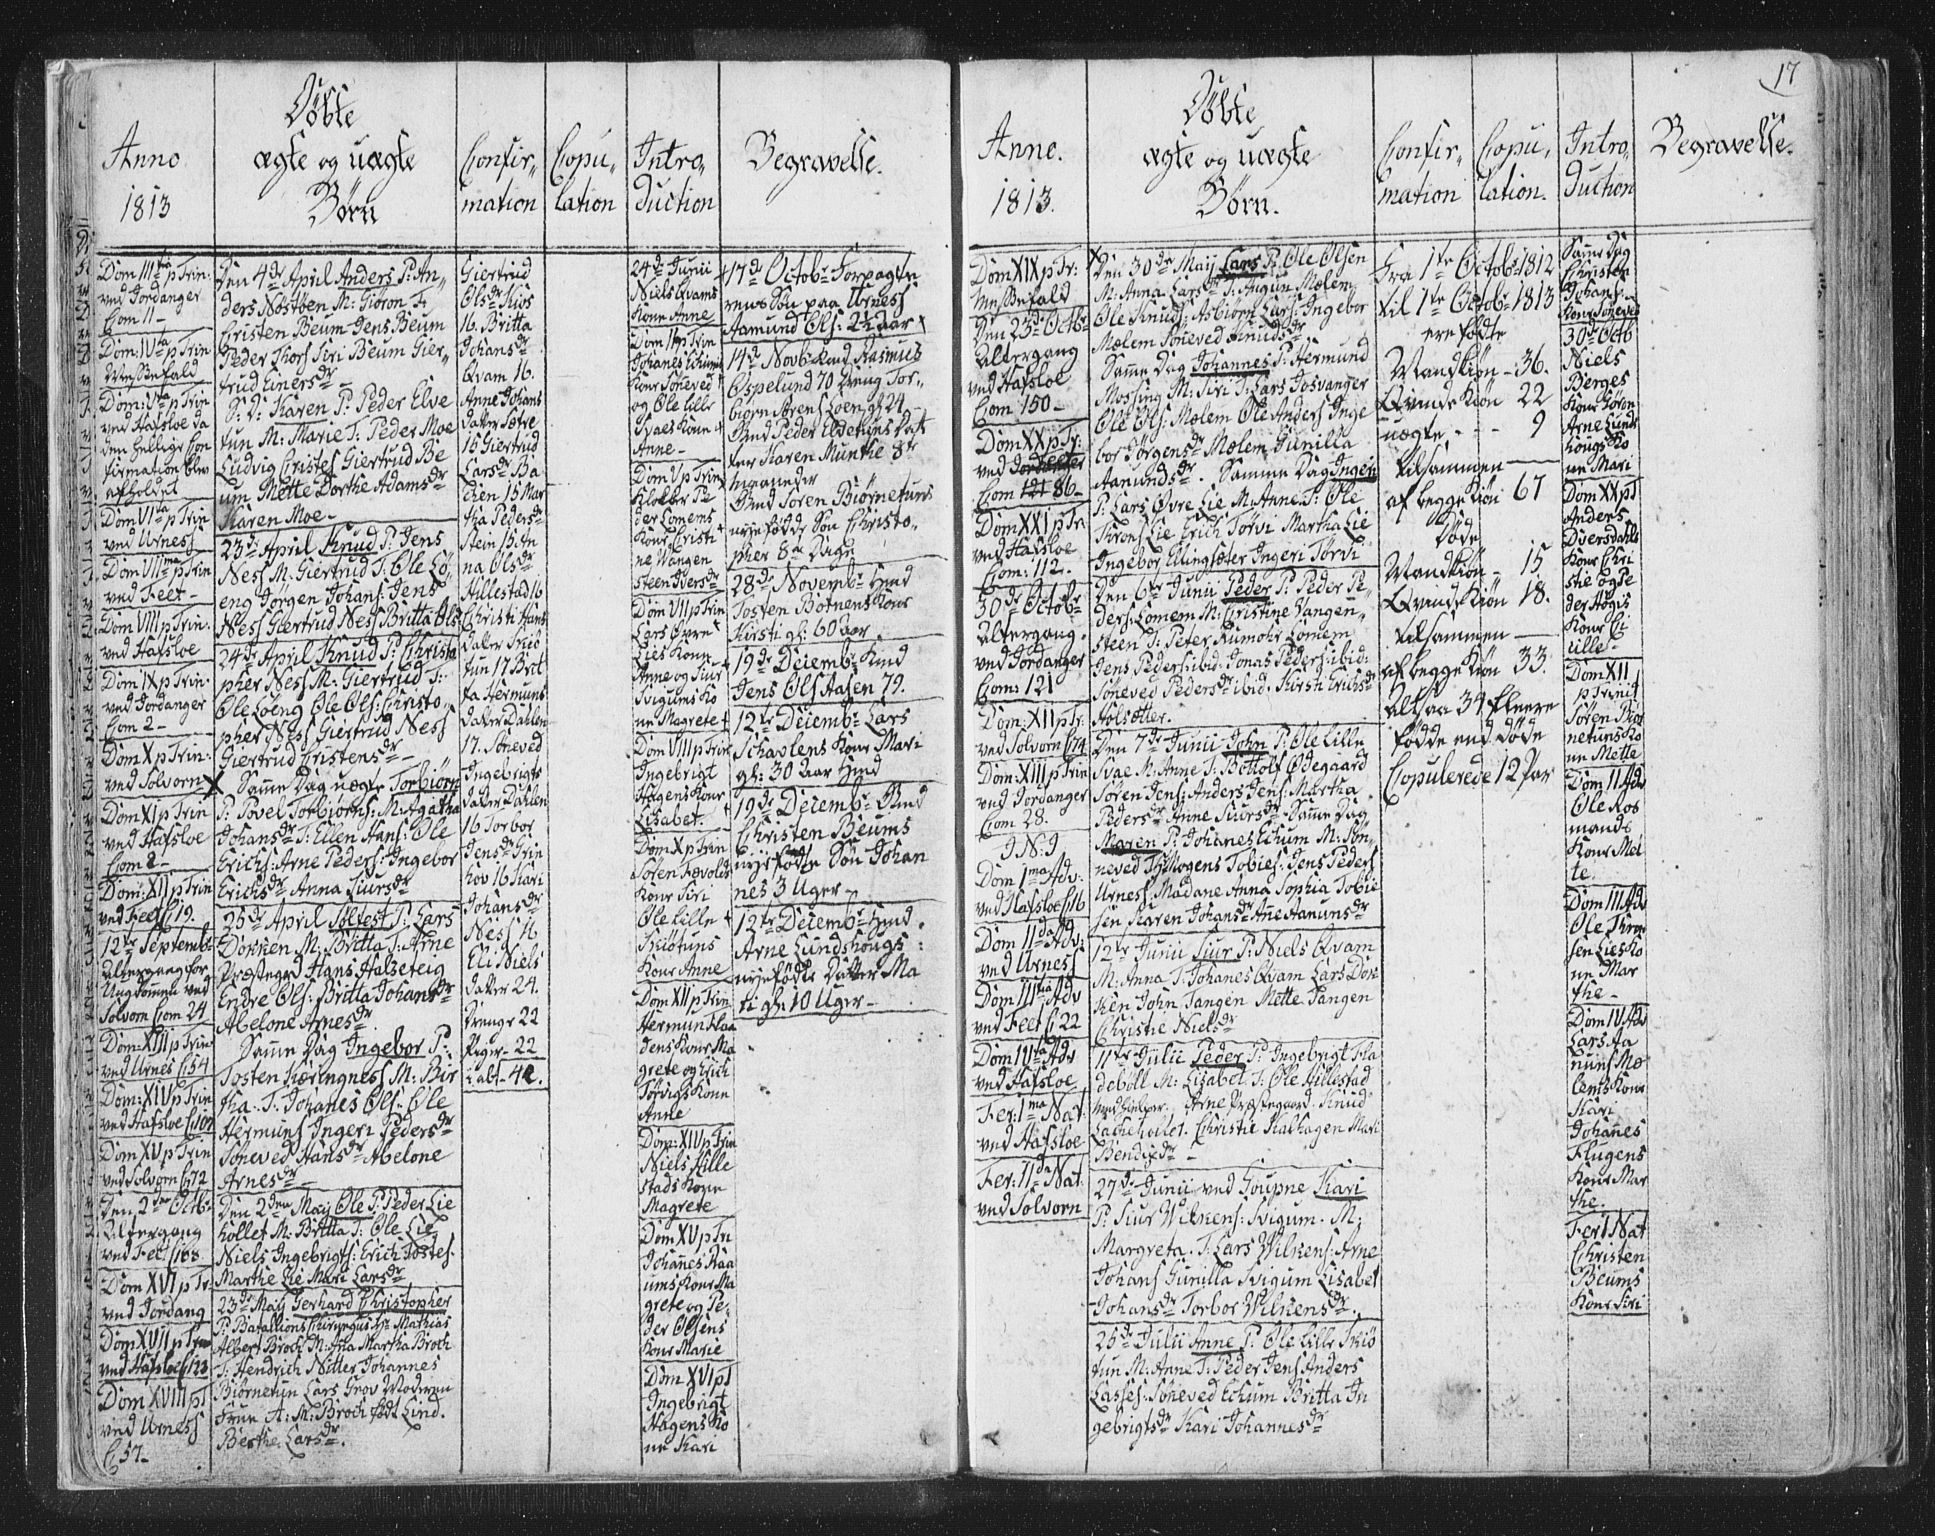 17
Anno
1813
Døbte
ægte og uægte
Børn
Confir-
mation
Copu-
lation
Intro-
duction
Begravelse.
Dom IIItia p Trin:
ved Jordanger
Com 11 -
Dom: IVta p Trin
Messefald
Dom: Vta p Trin
ved Hafsloe da
den hellige Con
firmation blev
afholdet
Dom VIta p Trin
ved Urness
Dom VIIma p Trin
ved Feet -
Dom VIII p Trin
ved Hafsloe
Dom IX p Trin
ved Jordanger
Com 2 -
Dom X p Trin:
ved Solvorn -
Dom XI p Trin
ved Hafsloe
Com 2 -
Dom: XII p Trin
ved Feet C 19.
12te Septemb:
Altergang for
Ungdommen ved
Solvorn Com 24
Dom: XIII p Trin
ved Urnes C 54
Dom: XIV p Trin
ved Hafsloe C 107
Dom XV p Trin
ved Solvorn C 72
Den 2den Octb:
Altergang
ved Feet C 68
Dom XVI p Tr.
ved Jordang
Dom XVII p Trin
ved Hafsloe C 123
Dom XVIII p T
ved Urness
C 57 -
Den 4de April Anders P: An-
ders Nostøen M: Gioron F:
Cristen Beum Jens Beum
Peder Thors Siri Beum Gier-
trud Einersdr -
S: D: Karen P: Peder Elve
tun M: Marie F: Peder Moe
Ludvig Cristes Giertrud Be
um Mette Dorthe Adamsdr
Karen Moe -
23de April Knud P: Jens
Ness M: Giertrud F: Ole Lö-
eng Jörgen Johans: Jens
Ness Giertrud Ness Britta Olsd
24de April Knud P: Christo
pher Ness M: Giertrud F:
Ole Loeng Ole Ols: Christo
pher Ness Giertrud Ness
Giertrud Cristensdr -
X Samme Dag uægte Torbiörn
P: Povel Torbiorns: M: Agatha
Johansdr F: Ellen Hans: Ole
Erichs: Arne Peders: Ingebor
Erichsdr Anna Siursdr
25de April Soltest P: Lars
Dokken M: Britta F: Arne
Præstegrd Hans Halzeteig
Endre Ols: Britta Johansdr
Abelone Arnesdr
Samme Dag Ingebor P:
Tosten Kæringness M: Bir
tha F: Johanes Ols: Ole
Hermuns Ingeri Pedersdr
Söneved Hansdr Abelone
Arnesdr -
Den 2den May Ole P: Peder Lie
hollet M: Britta F: Ole Lie
Niels Ingebrigts: Erich Jostes
Marthe Lie Mari Larsdr
23de May Gerhard Christopher
P: Batallions Chirurgus Hr Mathias
Albert Broch M: Ana Martha Broch
F: Hendrich Nitter Johannes
Biörnetun Lars Grov Moderen
Frue A: M: Broch født Lind.
Berthe Larsdr.
Giertrud
Olsdr Kios
16. Britta
Johansdr
Qvam 16.
Anne Johans
datter Sætre
15 Giertrud
Larsdr Ba
chen 15 Mar
tha Pedersdr
Stein 15 An
na Olsdr
Hillestad 16
Christi Hans
datter Friö
tun 17 Brit
ta Hermuns
datter Dahlen
17. Söneved
Ingebrigts
datter Dahlen
16 Torbor
Jensdr Grin
hov 16 Kari
Johansdr
Ness 16
Eli Niels
datter 24.
Drenge 22
Piger - 22
i alt - 42.
24de Junii
Niels Qvams
Kone Anne
Dom II p Trin
Johanes Echums
Kone Söneved
og Ole Lille
Svaes Kone
Anne -
Dom V p Trin
Klokker Pe
der Lomens
Kone Christi
ne Wangen
steen Iversdr
Dom VII p Trin
Lars Øvre
Lies Kone
Anne og Siur
Svigums Ko
ne Magrete
Dom VIII p Trin
Ingebrigt
Hagens Kone
Lisabet.
Dom X p Trin
Sören Fævolds
Kone Siri
Ole Lille
Kiötuns
Kone Anne
Dom XII p Trin
Hermun Flaa
dens Kone Ma
grete og Erich
Törvigs Kone
Anne
Dom: XIV p Trin
Niels Hille
stads Kone
Magrete
Dom XV p Tri
Johanes Haa
ums Kone Ma
grete og Pe-
der Olsens
Kone Marie
Dom XVI p T
Ingebrigt
Hagens Ko
ne Kari
17de Octobr Forpagte
rens Søn paa Urness
Aamund Ols: 2½ aar
14de Novb: Knud Rasmus
Ospelund 70 Dreng Tor-
biørn Sørens Loen gl 24 -
Smd Peder Eldetuns Dat
ter Karen Munthe 8te
maaneder
Smd Soren Biørnetuns
nyefødde Søn Christo-
pher 8te Dage
28de Novembr Hmd
Tosten Botnens Kone
Kirsti gl: 60 aar
19de Deiembr Kind
Jens Ols Aasen 79.
12te Deiembr Lars
Schavlens Kone Mari
gl: 30 aar Hmd
19de Decembr Smd
Christen Beums
nyefødte Søn Johan
nes 3 Uger -
12te Decembr Hmd
Arne Lundshougs
nyefödte Datter Ma
ri gl: 10 Uger -
Anno.
1813.
Døbte
ægte og uægte
Børn.
Confir-
mation
Copu-
lation.
Intro-
duction
Begravelse.
Dom XIX p Tr:
Messefald
Den 23de Octbr
Altergang
ved Hafsloe
Com 150 -
Dom XX p Tr:
ved Jordanger
Com 121 86 -
Dom: XXI p Tr:
ved Hafsloe
Com: 112.
30de Octobr
Altergang
ved Jordanger
Com: 121
Dom: XII p Tr:
ved Solvorn C 74
Dom: XIII p Trin
ved Jordanger
Com 28.
I N I
Dom 1ma Adv:
ved Hafsloe C 16
Dom IIda Adv:
ved Urness
Dom IIItia Adv
ved Feet C 22
Dom IVta Adv
ved Hafsloe
Fer: 1ma Nat:
ved Hafsloe
Fer: IIda Nat
ved Solvorn
X Den 30de May Lars P: Ole Olsen
M: Anna Larsdr F: Augun Molem
Ole Knuds: Asbiørn Lars: Ingebor
Molem Söneved Knudsdr
Samme Dag Johannes P: Hermund
Mossing M: Siri F: Lars Josvanger
Ole Ols: Molem Ole Anders Inge
bor Jörgensdr Molem Gunilla
Aamundsdr. Samme Dag Ingeri
P: Lars Øvre Lie M: Anne F: Ole
Throns Lie Erich Torvi Martha Lie
Ingebor Ellingsæter Ingeri Törvi
Den 6te Junii Peder P: Peder Pe-
ders: Lomem M: Christine Vangen-
steen F: Peter Rumohr Lomem
Jens Peders: ibid: Jonas Peders: ibid:
Söneved Pedersdr ibid. Kirsti Erichsdr
Holsætter.
Den 7de Junii John P: Ole Lille
Svae M: Anne F: Bottolf Ødegaard
Sören Jens: Anders Jens: Martha
Pedersdr Anne Siursdr Samme Dag
Maren P: Johanes Echum M: Sön-
neved F: Mogens Tobies: Jens Peders
Urness: Madame Anna Sophia Tobie
sen Karen Johansdr Ane Hamunsdr
12te Junii Siur P: Niels Qvam
M: Anna F: Johanes Qvam Lars Dok
ken John Tangen Mette Tangen
Christie Nielsdr
11te Julii Peder P: Ingebrigt Fla
deboll M: Lisabet F: Ole Hillestad
Arne Præstegaard Knud
Christie Mari
Bendixdr -
27de Junii ved Joupne Kari
P: Siur Wilkens: Svigum M:
Margreta F: Lars Wilkens: Arne
Johans Gunilla Svigum Lisabet
Johansdr Torbor Wilkensdr.
25de Julii Anne P: Ole Lille Friö
tun M: Anne F: Peder Jens Anders
Lasses: Söneved Echum Britta In
gebrigtsdr Kari Johannesdr
Fra 1te Octobr 1812
til 1te Octobr 1813
ere födte
Mandkiön - 36.
Qvindekiön 22
uægte - - - 9
tilsammen
af begge Kiön 67
Døde
Mandkiön - 15
Qvindekiön 18.
tilsammen
af begge Kiön 33.
altsaa 34 fleere
fødde end døde
Copulerede 12 Par
Samme Dag
Christen
Johans:
Kone Söneved
30de Octb
Niels
Berges
Kone Gören
Arne Lunds
hougs Ko
ne Mari
Dom XX p T
Anders
Dversdahls
Kone Chri
stie og Pe
der Högis
Kone Ci
cille -
Dom XII
p Trinit
Sören Biör
netuns Ko
ne Mette
Dom II Adv
Ole Ros
mands
Kone Met
te.
Dom III Adv
Ole Thron
sen Lies Ko
ne Mar
the -
Dom IV Adv
Lars Aa
muns Mo
lems Kone
Kari
Johanes
Flugens
Kone Mar
the.
Fer I Nat
Christen
Beums
Kone Siri